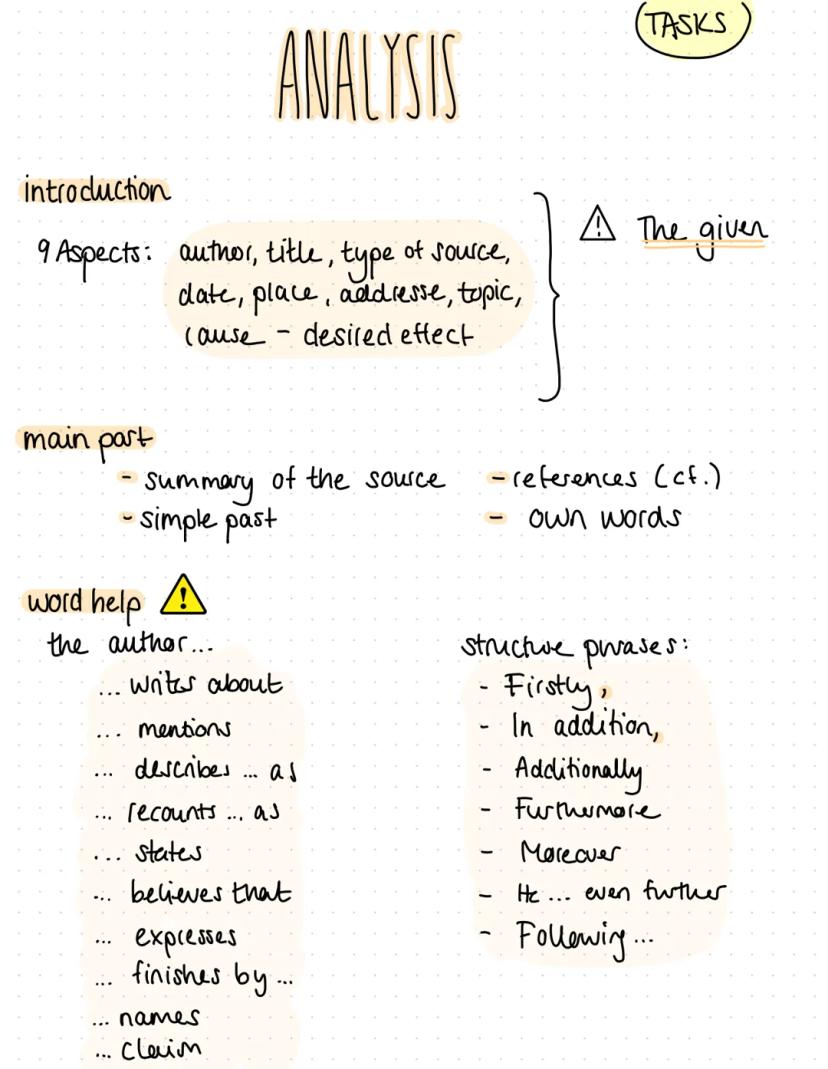 TASKS
ANALYSIS
introduction
9 Aspects: author, title, type of source,
date, place, addresse, topic,
cause - desired effect
⚠ The given
main part
- summary of the source
- simple past
- references (cf.)
- own words
word help ⚠
the author...
... writes about
... mentions
... describes ... as
... recounts ... as
... states
... believes that
... expresses
... finishes by ...
... names
... claim
structure phrases:
- Firstly,
- In addition,
- Additionally
- Furthermore
- Moreover
- He ... even further
- Following ...